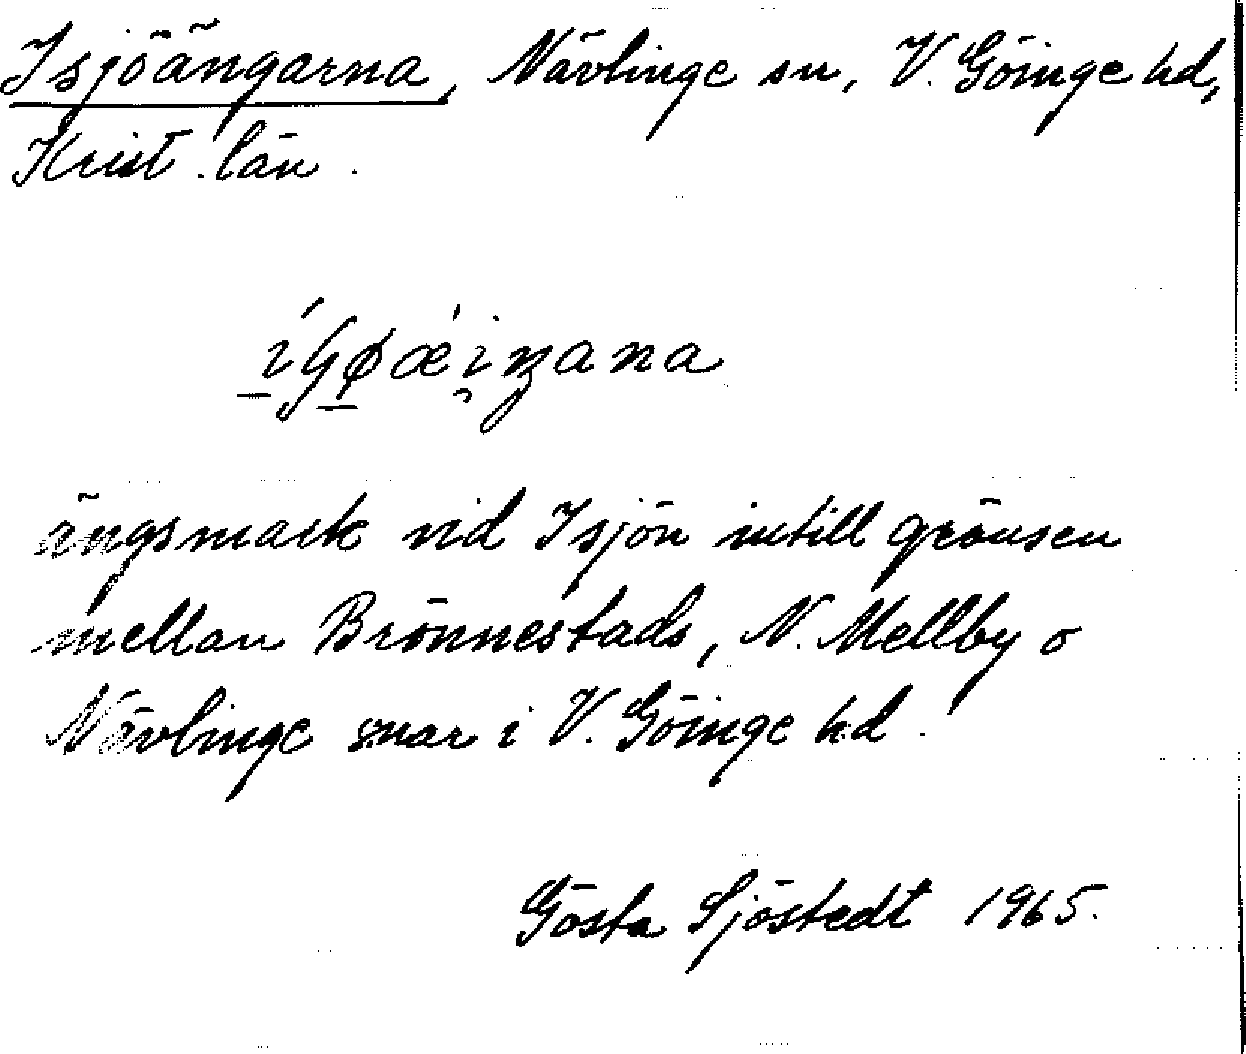 Isjöängarna, Nävlinge sn, V. Göinge hd,
Krist. län.
ängsmark vid Isjön intill gränsen
mellan Brönnestads, N. Mellby o
Nävlinge snar i V. Göinge hd.
Gösta Sjöstedt 1965.